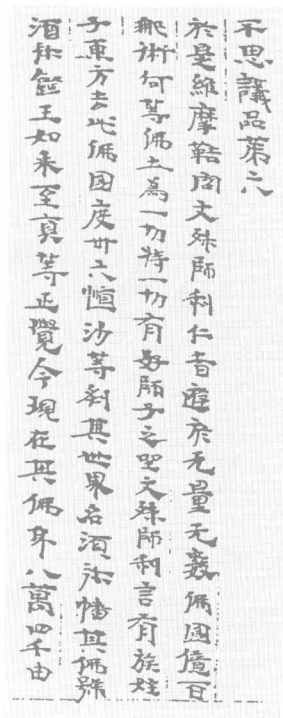 不思議品第六
於是維摩鞊問文殊師利仁者遊於无量无數佛國億百
那術何等佛土為一切持一切有好師子之坐文殊師利言有族姓
子東方去此佛国度卅六恒沙等剎其世界名湏弥幡其佛號
湏弥鐙王如来至真等正覺今現在其佛身八萬四千由